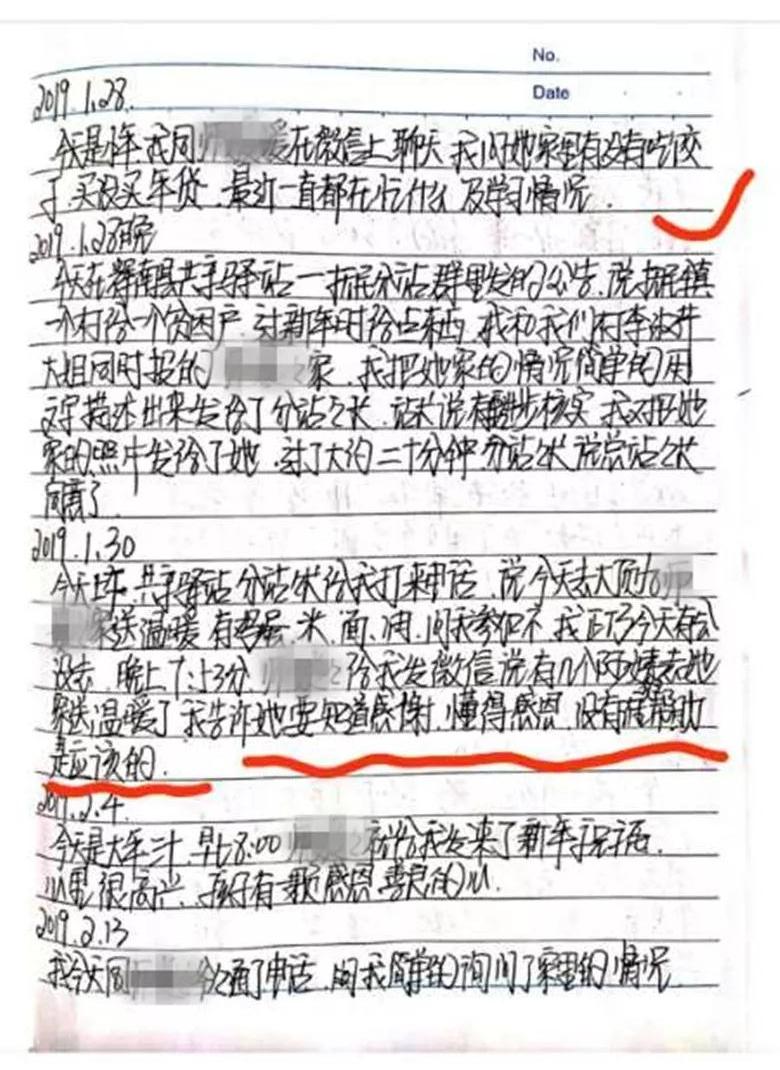 No.
Date
2019.1.28.
今天是小年我同 在微信上聊天 我问她家里有没有吃饺
子 买没买年货 最近一直都在忙什么 及学习情况.
2019.1.28晚
今天在辉南县共享驿站一抚民分站群里发的公告.说抚民镇
一个村给一个贫困户 过新年时给点东西 我和我们村李
大姐同时报的 家.我把她家的情况简单的用
文字描述出来发给了分站站长.站长说 核实 我又把她
家的照片发给了她.过了大约二十分钟 分站站长说总站站长
同意了.
2019.1.30
今天上午 共享驿站分站站长给我打来电话.说今天去大顶
家送温暖 有鸡蛋.米.面.油.问我参加不 我 今天有
没去.晚上7:53分 给我发微信说有几个阿姨去她
家送温暖了 我告诉她要知道感谢.懂得感恩.没有谁帮助
是应该的.
2019.2.4.
今天是大年三十 早上8:00 就给我发来了新年祝福.
心里很高兴.孩子有一颗感恩善良的心.
2019.2.13
我今天同 通了电话.问我简单的询问了家里的情况